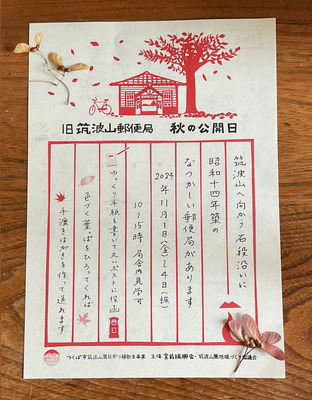 旧筑波山郵便局 秋の公開日
筑波山へ向かう石段沿いに
昭和十四年築の
なつかしい郵便局があります
2024年11月1日(金)〜4日(振)
10〜15時 局舎内見学可
ゆっくり手紙を書いて丸いポストに投函
色づく葉っぱをひろってくれば
手漉きはがきを作って送れます
つくば市筑波山麓秋祭り補助金事業 主催
筑波山麓地域づくり協議会